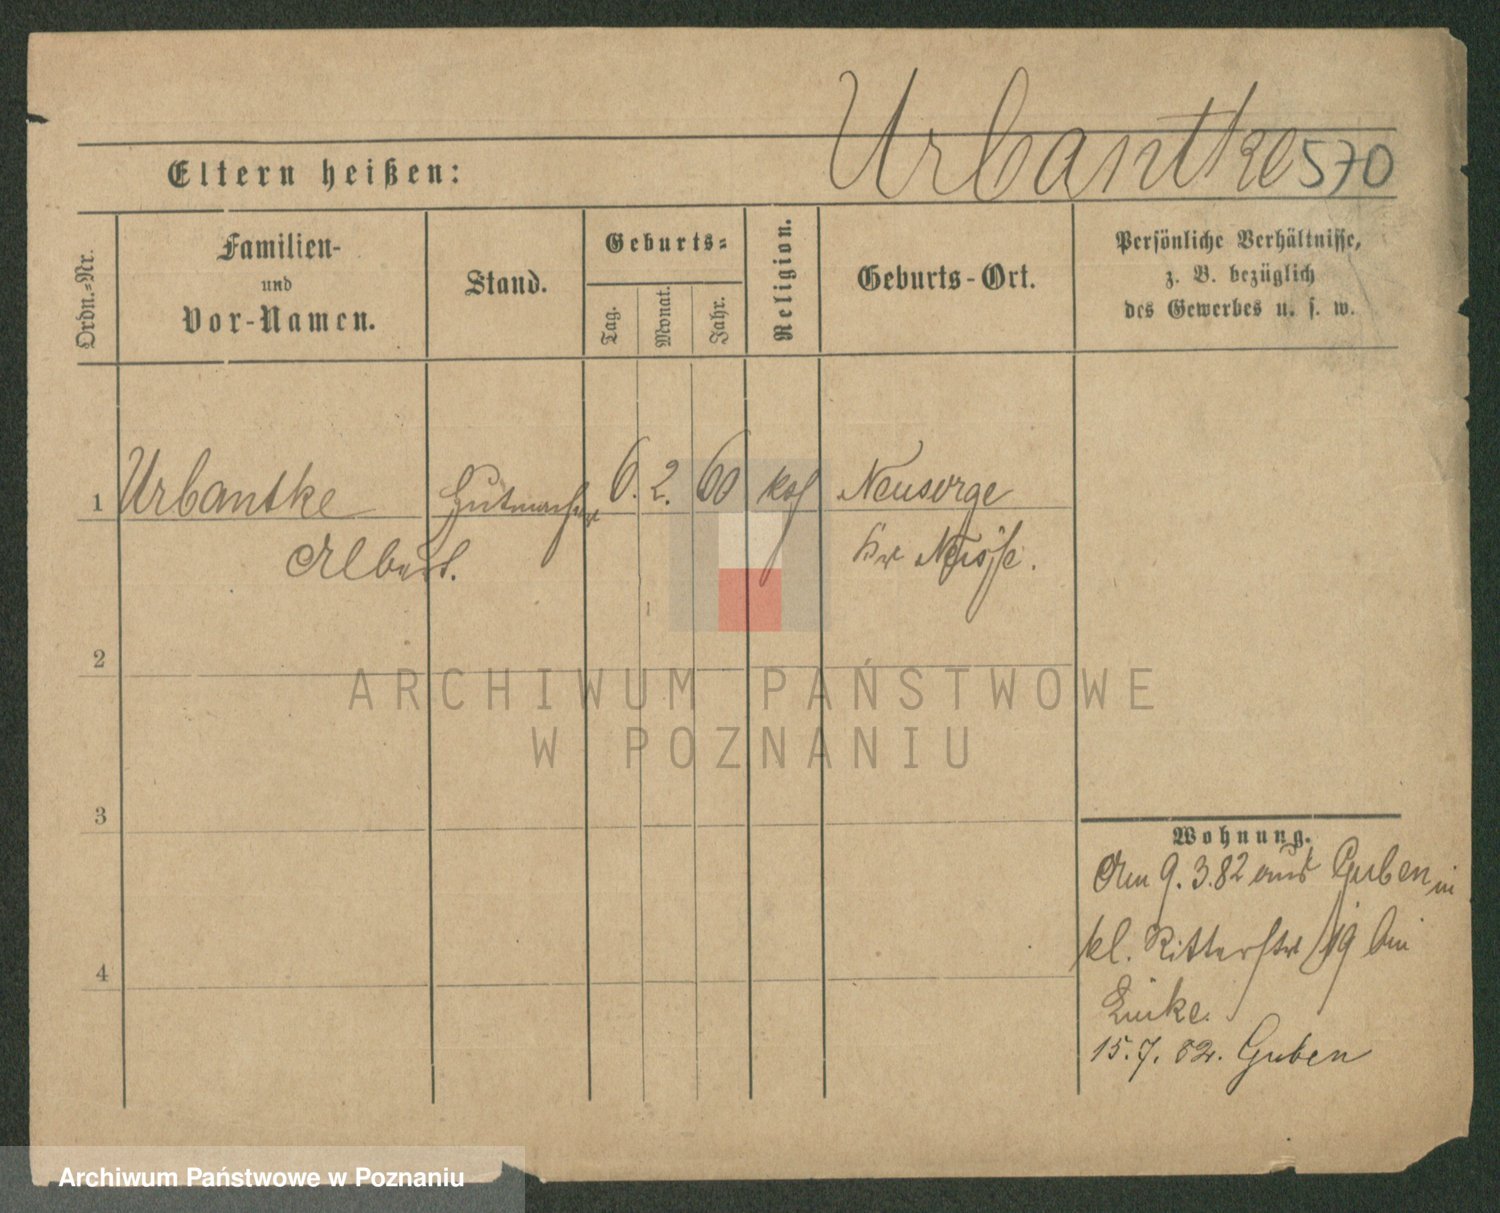 Urbantke 570
Eltern heißen:
Ordn.-Nr.
Familien-
und
Vor-Namen.
Stand.
Geburts-
Tag.
Monat.
Jahr.
Religion.
Geburts-Ort.
Persönliche Verhältnisse,
z. B. bezüglich
des Gewerbes u. s. w.
1 Urbantke Hutmacher 6. 2. 60 kath Neusorge
Albert. Kr Neisse.
2
ARCHIWUM PAŃSTWOWE
W POZNANIU
3
4
Wohnung.
Am 9. 3. 82 aus Guben in
kl. Ritterstr 19 bei
Linke.
15. 7. 82. Guben
Archiwum Państwowe w Poznaniu